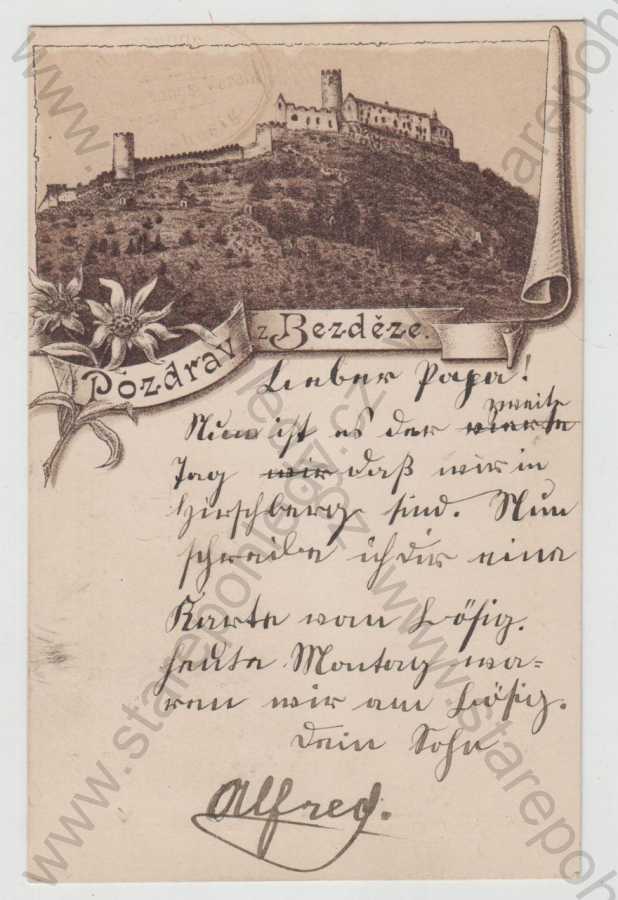 Pozdrav z Bezděze.
Lieber Papa!
zweite
Nun ist es der vierte
Tag wir daß wir in
Hirschberg sind. Nun
schreibe ich dir eine
Karte vom Bösig.
heute Montag wa-
ren wir am Bösig.
Dein Sohn
Alfred.
www.starepohledy.cz